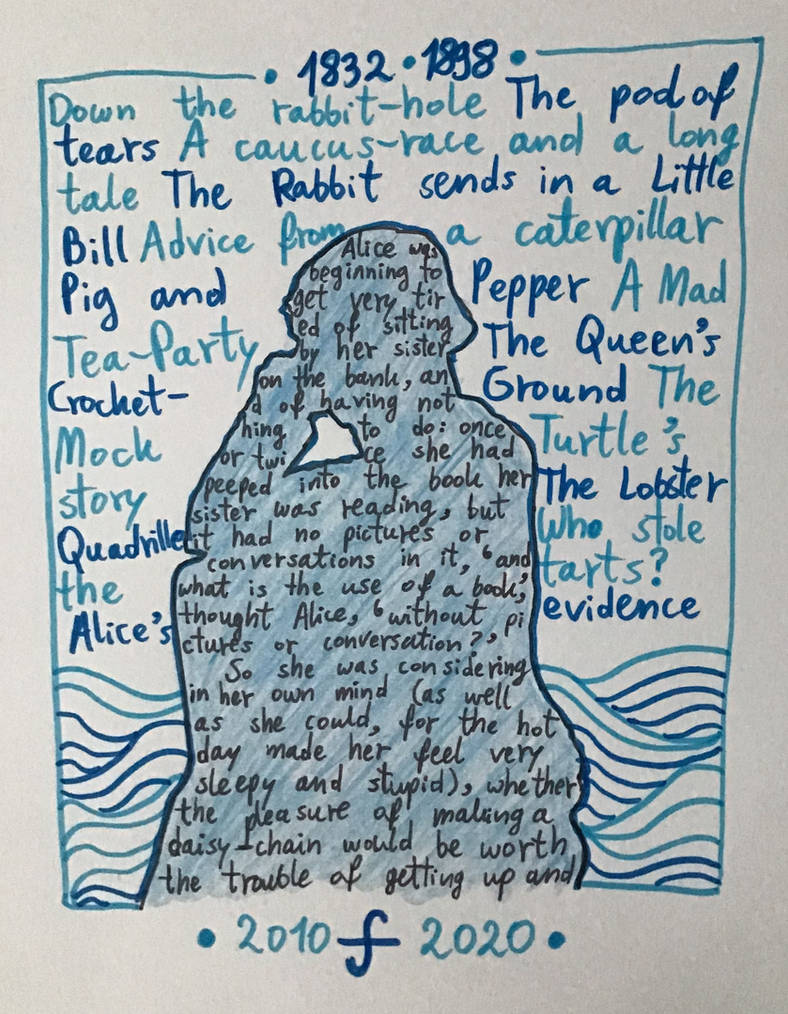 • 1832 • 1898 •
Down the rabbit-hole The pod of
tears A caucus-race and a long
tale The Rabbit sends in a Little
Bill Advice from a caterpillar
Pig and Pepper A Mad
Tea-Party The Queen's
Crocket- Ground The
Mock Turtle's
story The Lobster
Quadrille Who stole
the tarts?
Alice's evidence
Alice was
beginning to
get very tir
ed of sitting
by her sister
on the bank, an
d of having not
hing to do: once
or twi ce she had
peeped into the book her
sister was reading, but
it had no pictures or
conversations in it, ‘and
what is the use of a book,’
thought Alice, ‘without pi
ctures or conversation?’
So she was considering
in her own mind (as well
as she could, for the hot
day made her feel very
sleepy and stupid), whether
the pleasure of making a
daisy-chain would be worth
the trouble of getting up and
• 2010 f 2020 •